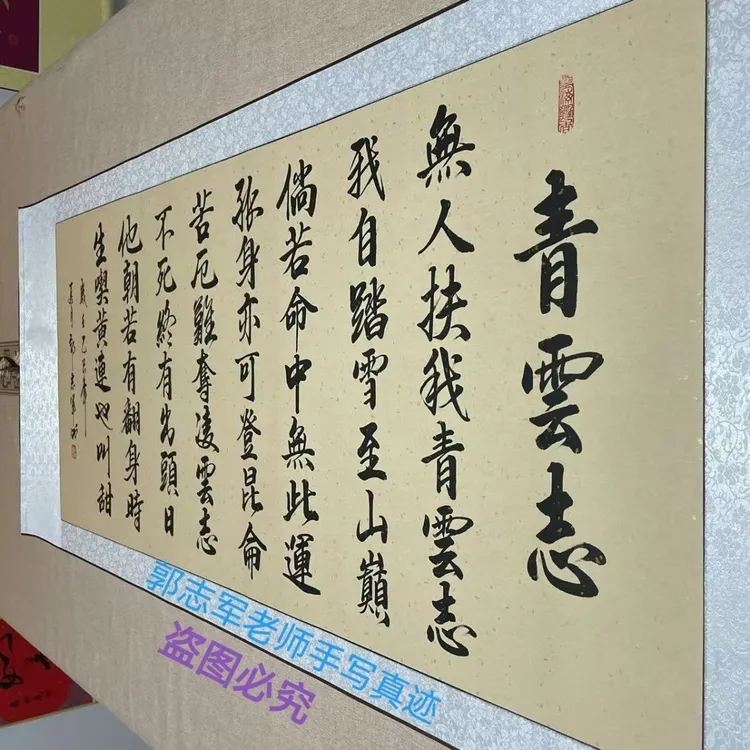 青雲志
無人扶我青雲志
我自踏雪至山巔
倘若命中無此運
孤身亦可登昆侖
苦厄難奪淩雲志
不死終有出頭日
他朝若有翻身時
生喫黃連也叫甜
歲在乙巳年
夏月郭志軍書
郭志军老师手写真迹
盗图必究